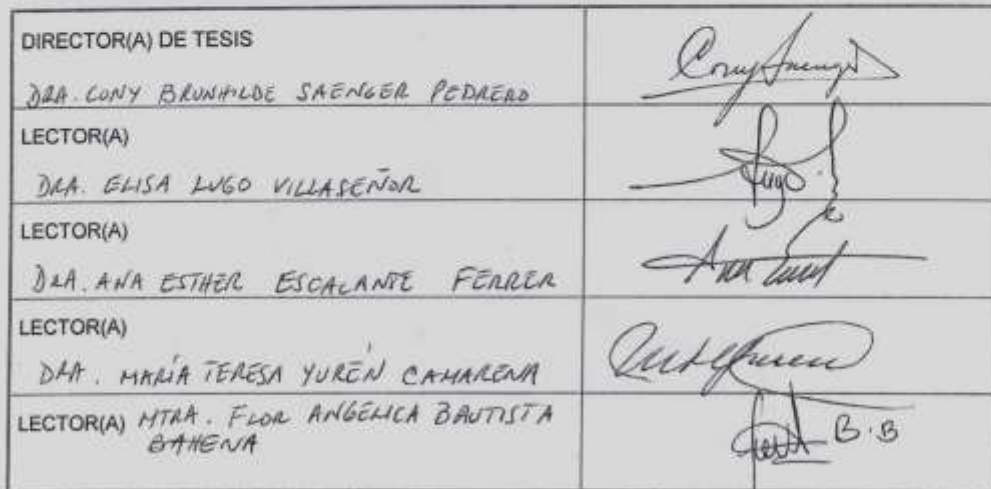 DIRECTOR(A) DE TESIS
DRA. CONY BRUNHILDE SAENGER PEDRERO
LECTOR(A)
DRA. ELISA LUGO VILLASEÑOR
Lugo
LECTOR(A)
DRA. ANA ESTHER ESCALANTE FERRER
LECTOR(A)
DRA. MARÍA TERESA YURÉN CAMARENA
LECTOR(A) MTRA. FLOR ANGÉLICA BAUTISTA
BAHENA
B.B